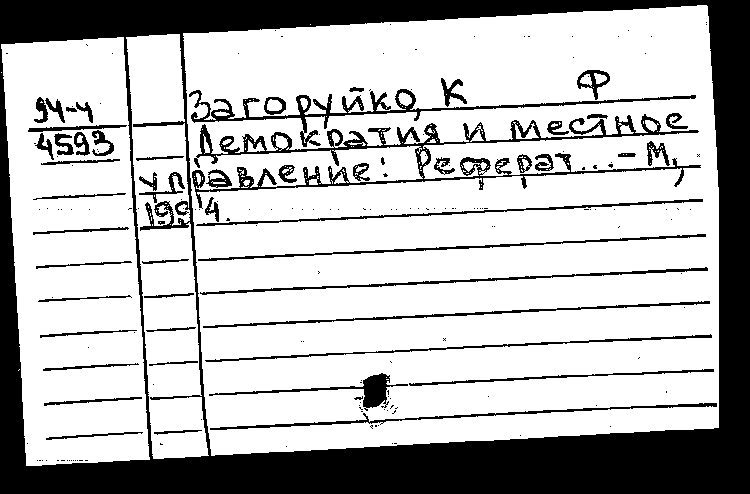 94-4 Загоруйко, К Ф
4593 Демократия и местное
управление: Реферат...-М,
1994.